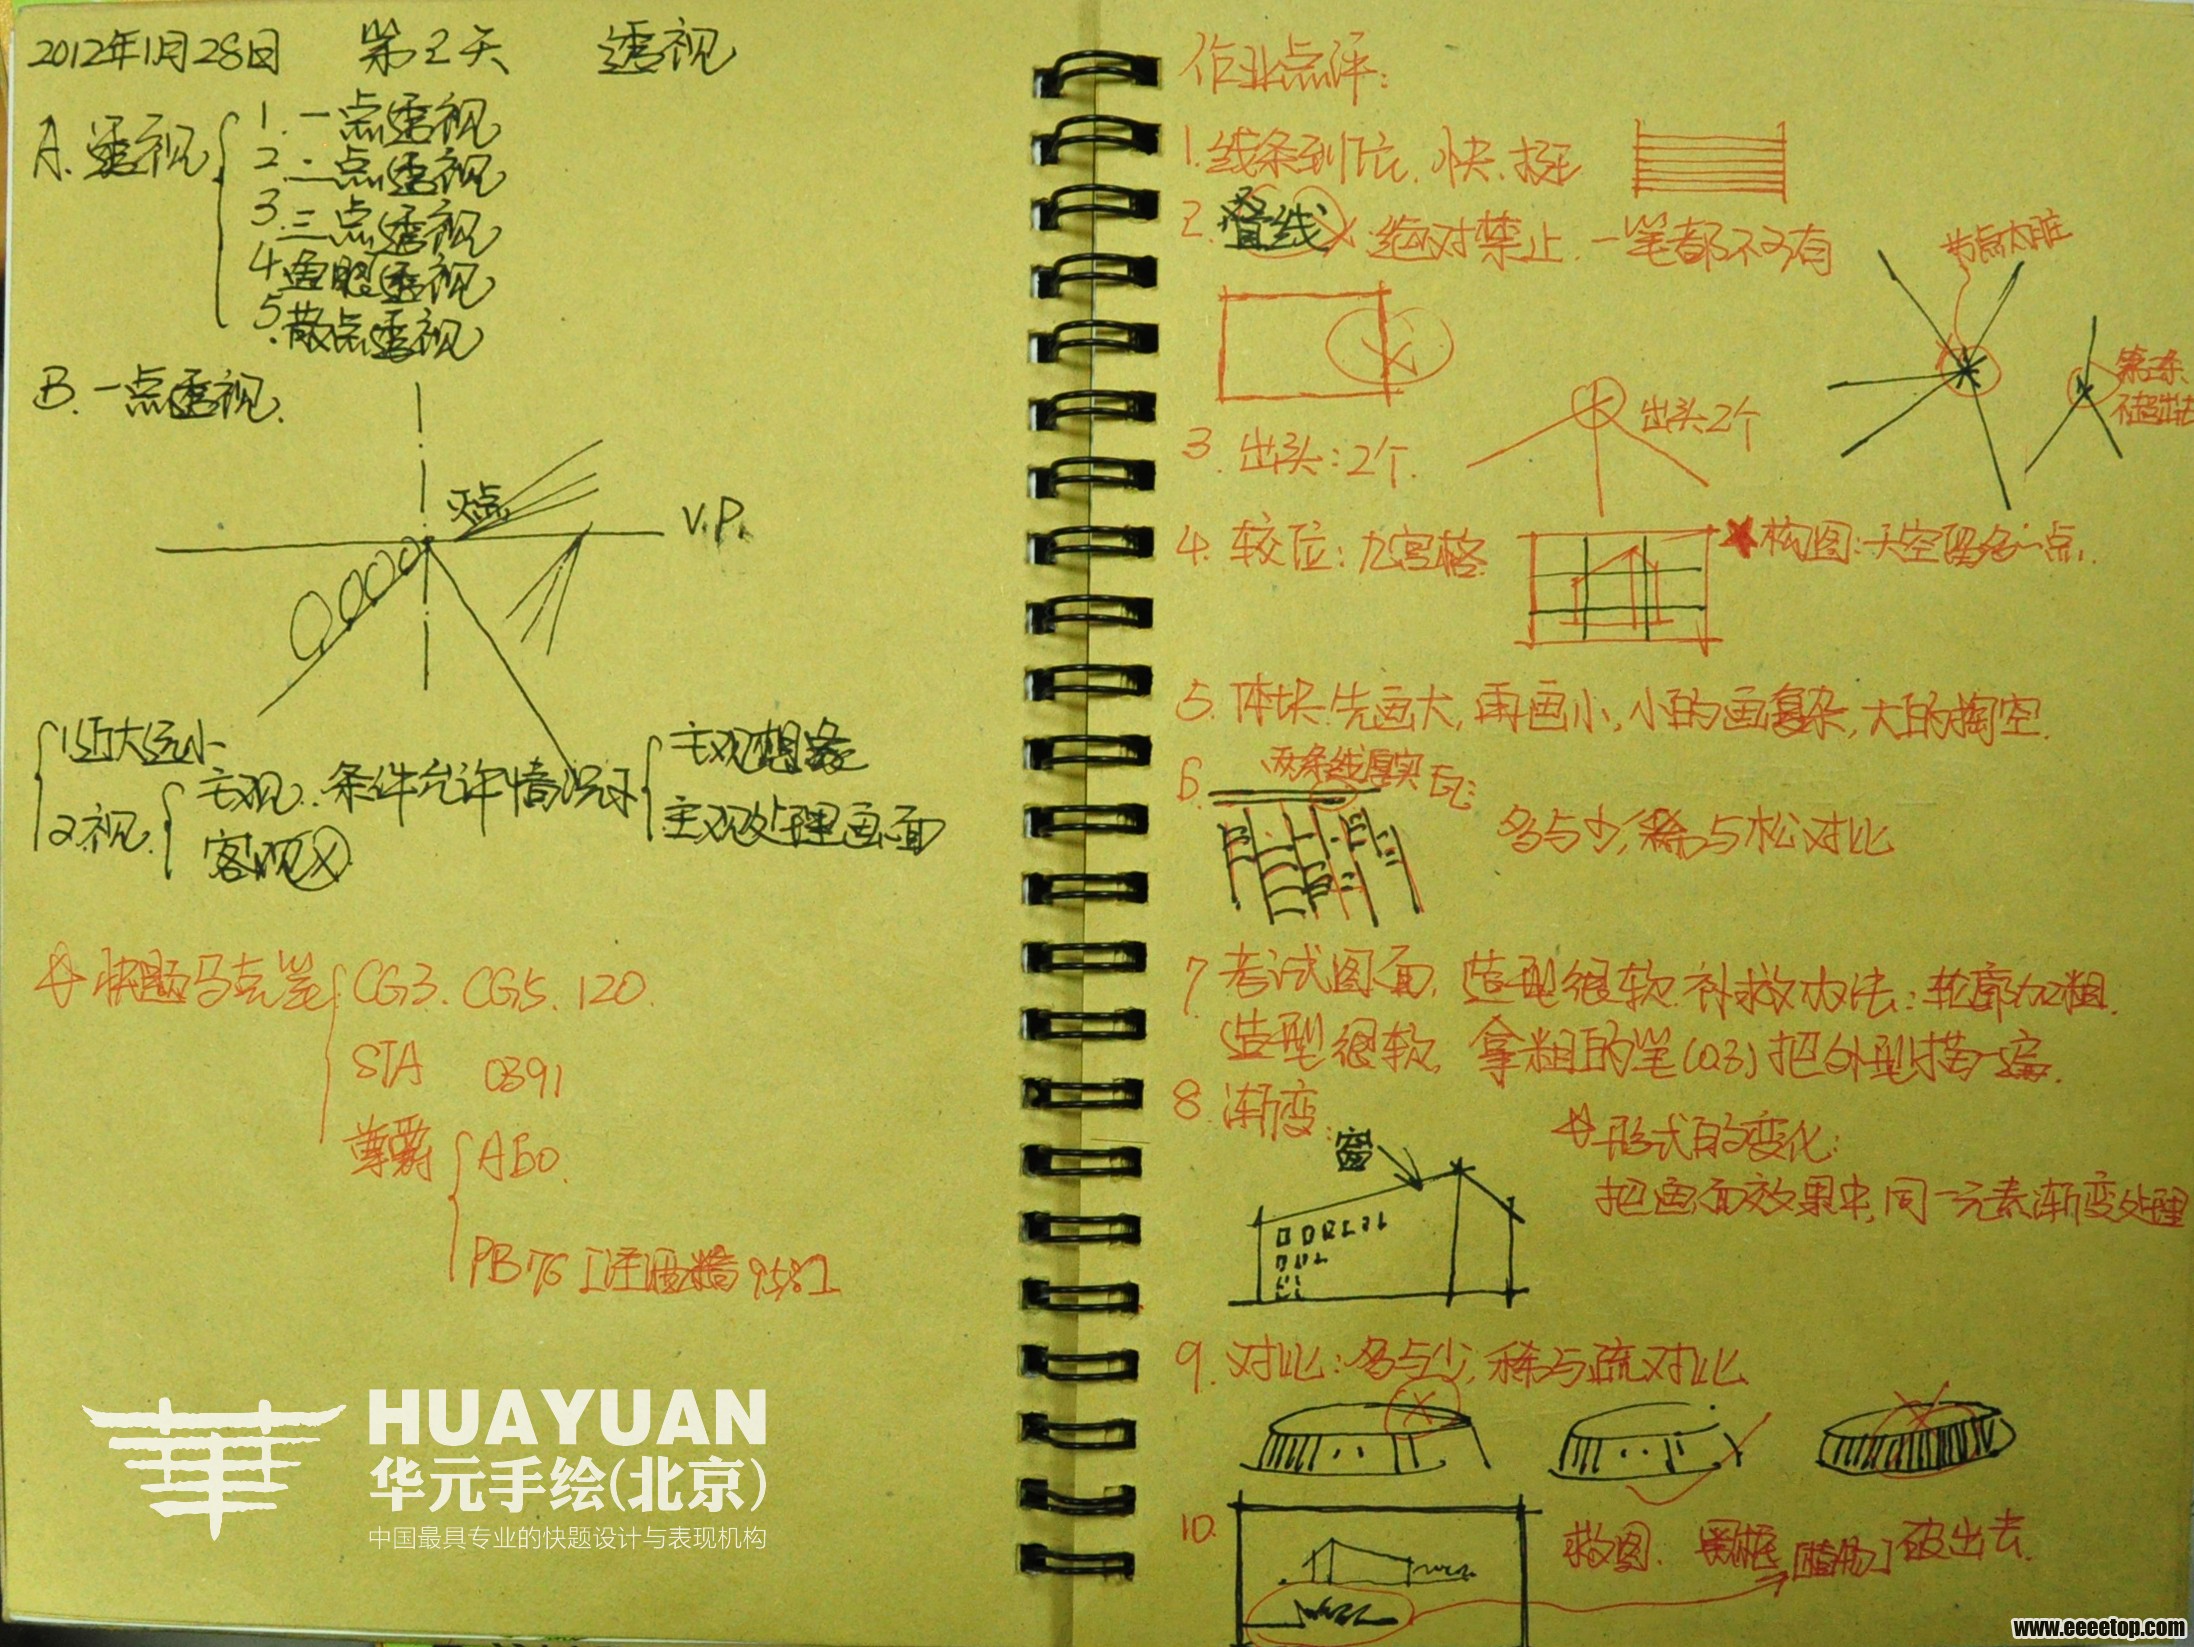 2012年1月28日 第2天 透视
A. 透视
1. 一点透视
2. 二点透视
3. 三点透视
4. 鱼眼透视
5. 散点透视
B. 一点透视.
灭点
V.P.
1近大远小
2.视.
主观: 条件允许情况下
主观想象
主观处理画面
客观
快题马克笔
CG3. CG5. 120.
STA 0391
尊爵
AE0.
PB76 9581
HUAYUAN
华元手绘(北京)
中国最具专业的快题设计与表现机构
作业点评:
1. 线条到位. 快. 挺
2. 叠线 X: 绝对禁止. 一笔都不可有
节点太脏
第三条
不超出去
3. 出头: 2个.
出头2个
4. 较位: 九宫格.
★构图: 天空留多一点.
5. 体块. 先画大, 再画小, 小的画复杂, 大的掏空.
6. 两条线厚实
多与少, 稀与松对比
7. 考试图面, 造型很软. 补救办法: 轮廓加粗.
造型很软, 拿粗的笔(0.3)把外型描一遍.
8. 渐变:
窗
形式的变化:
把画面效果中, 同一元素渐变处理
9. 对比: 多与少, 稀与疏对比
10.
救图. 黑框 [植物] 破出去.
www.eeeetop.com